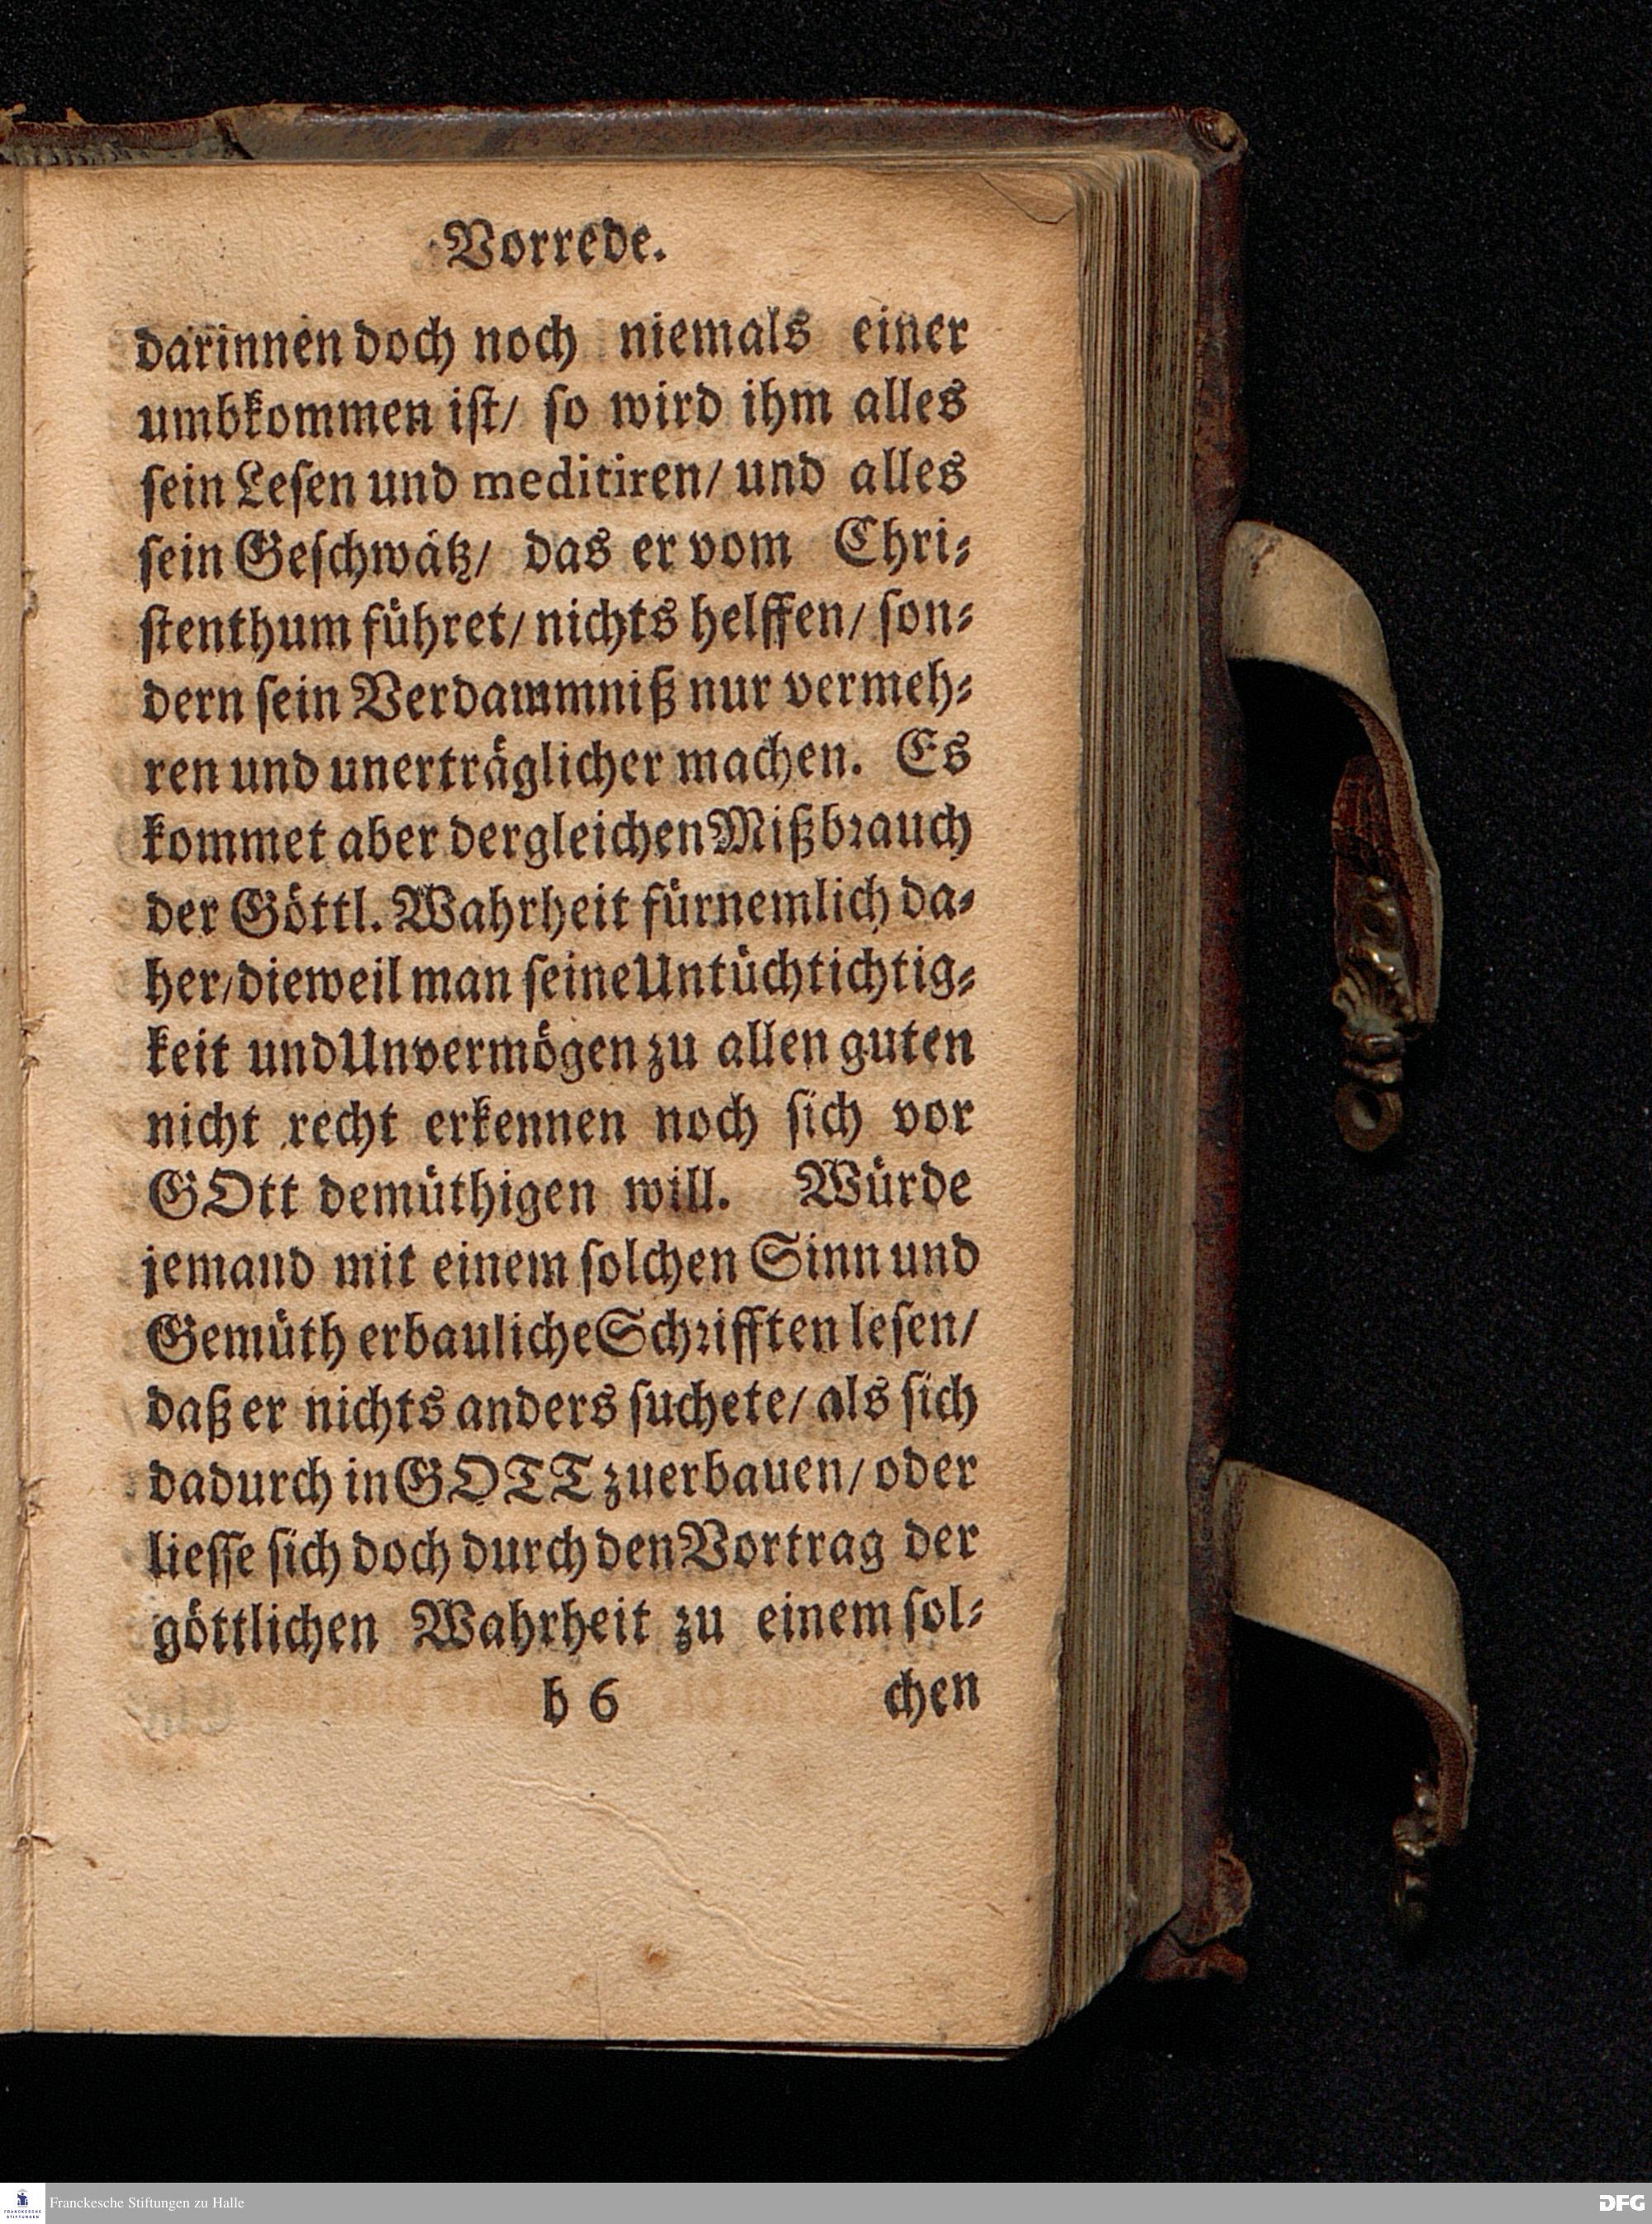 Vorrede.
darinnen doch noch niemals einer
umbkommen ist/ so wird ihm alles
sein Lesen und meditiren/ und alles
sein Geschwätz/ das er vom Chri-
stenthum führet/ nichts helffen/ son-
dern sein Verdammniß nur vermeh-
ren und unerträglicher machen. Es
kommet aber dergleichen Mißbrauch
der Göttl. Wahrheit fürnemlich da-
her/ dieweil man seine Untüchtichtig-
keit und Unvermögen zu allen guten
nicht recht erkennen noch sich vor
GOtt demüthigen will. Würde
jemand mit einem solchen Sinn und
Gemüth erbauliche Schrifften lesen/
daß er nichts anders suchete/ als sich
dadurch in GOTT zuerbauen/ oder
liesse sich doch durch den Vortrag der
göttlichen Wahrheit zu einem sol-
b 6 chen
Franckesche Stiftungen zu Halle
DFG